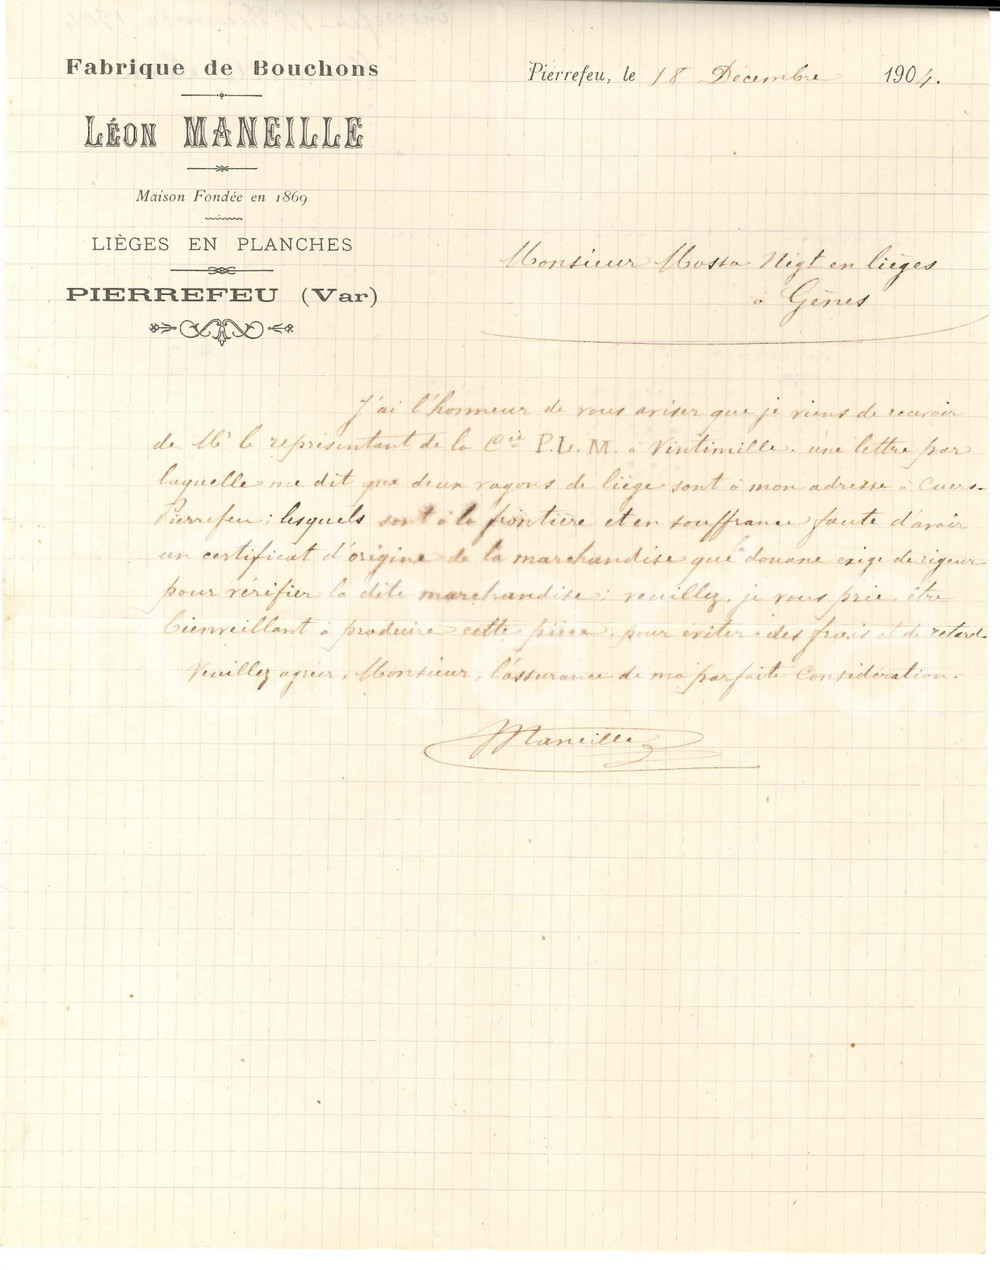 Fabrique de Bouchons
LÉON MANEILLE
Maison Fondée en 1869
LIÈGES EN PLANCHES
PIERREFEU (Var)
Pierrefeu, le 18 Décembre 1904.
Monsieur Mossa Négt en lièges
à Gênes
J'ai l'honneur de vous aviser que je viens de recevoir
de Mr le représentant de la Cie P.L.M. à Vintimille, une lettre par
laquelle me dit que deux vagons de liège sont à mon adresse à Cuers-
Pierrefeu; lesquels sont à la frontière et en souffrance faute d'avoir
un certificat d'origine de la marchandise que la douane exige de rigueur
pour vérifier la dite marchandise; veuillez, je vous prie, être
bienveillant à produire cette pièce, pour éviter des frais et de retard.
Veuillez agréer, Monsieur, l'assurance de ma parfaite considération.
Maneille